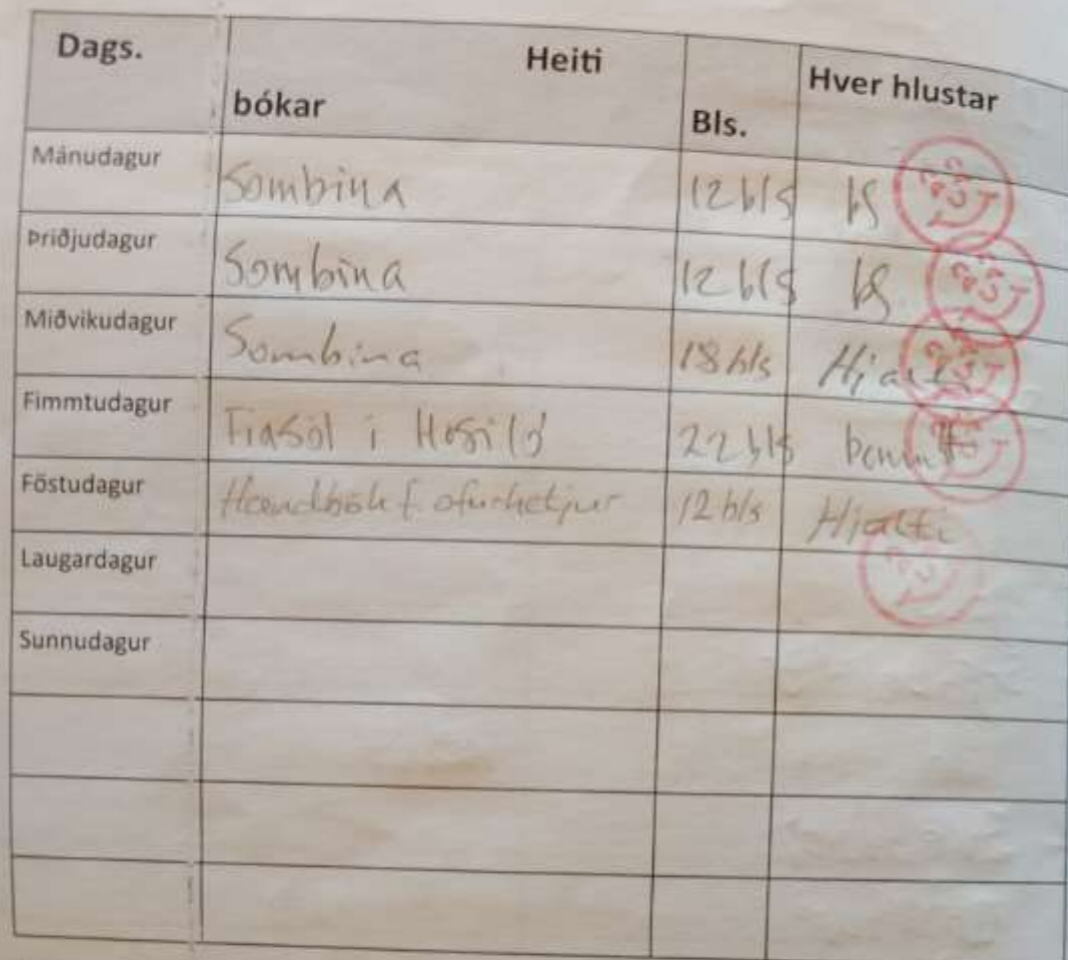 Dags. Heiti bókar Bls. Hver hlustar
Mánudagur Sombina 12 bls ÞS
Þriðjudagur Sombina 12 bls ÞS
Miðvikudagur Sombina 18 bls
Fimmtudagur Fíasól í Hosiló 22 bls
Föstudagur Handbók f. ofurhetjur 12 bls Hjalti
Laugardagur
Sunnudagur